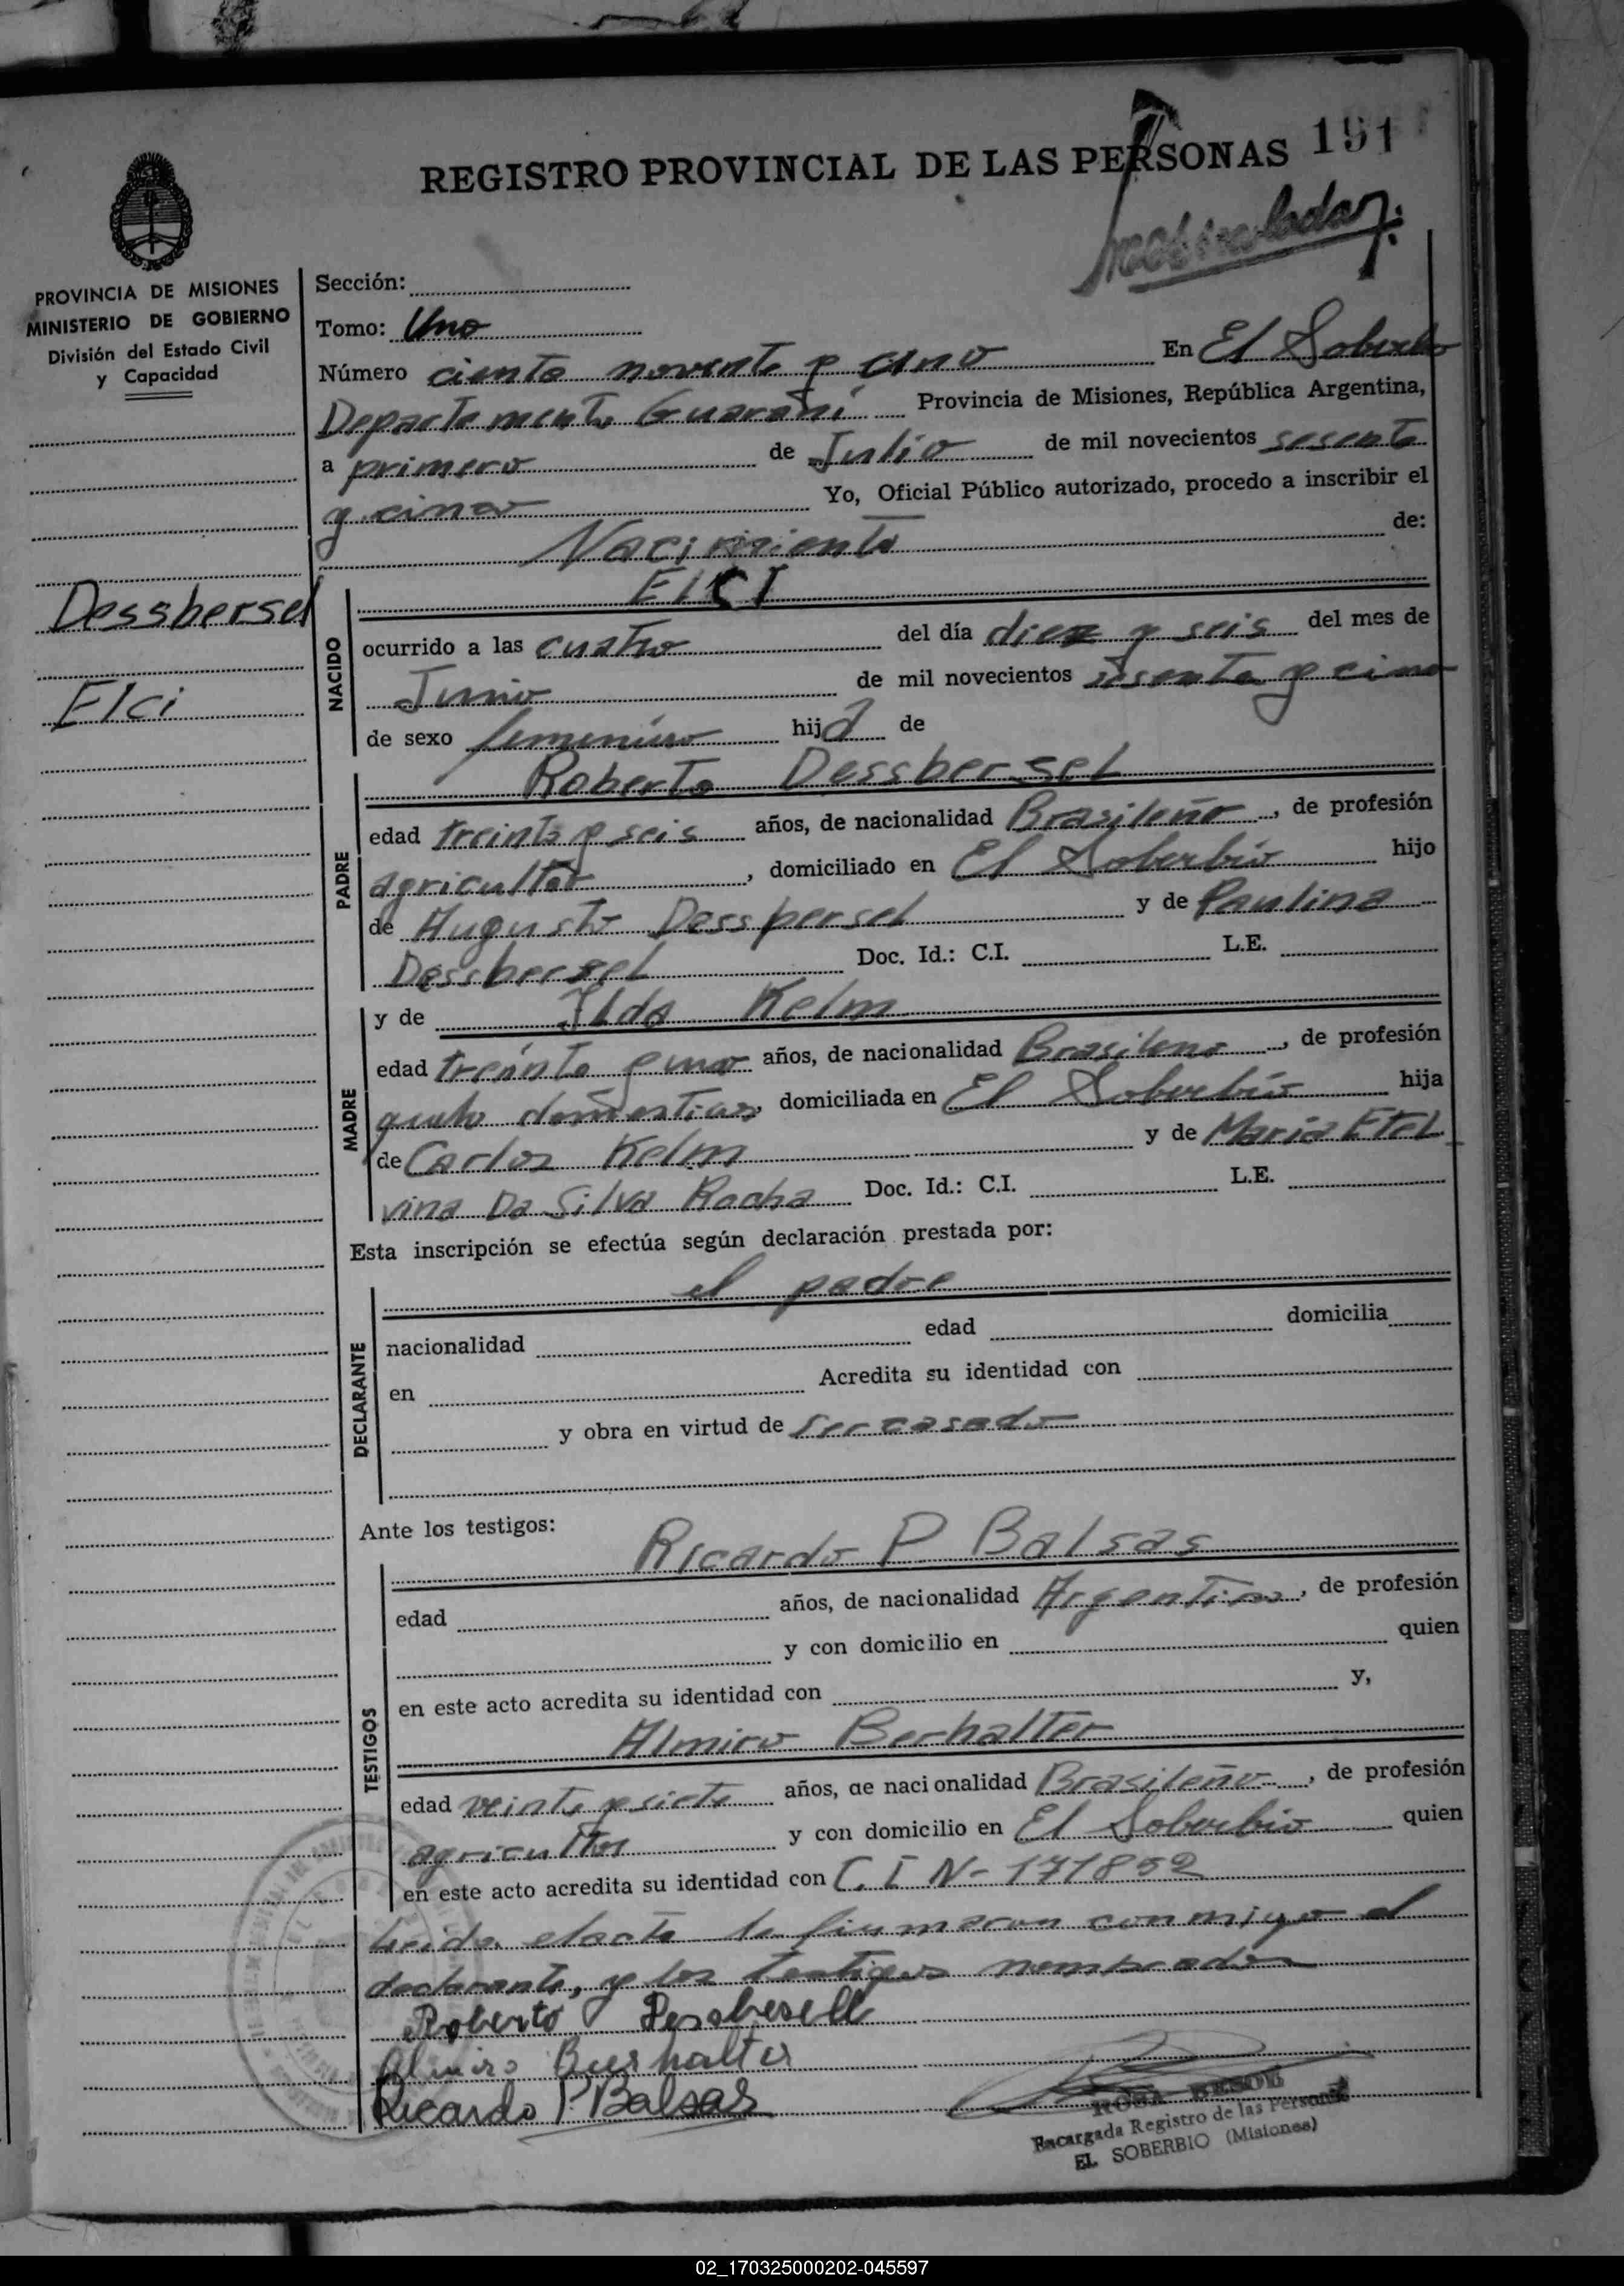 REGISTRO PROVINCIAL DE LAS PERSONAS 191
PROVINCIA DE MISIONES
MINISTERIO DE GOBIERNO
División del Estado Civil
y Capacidad
Sección:
Tomo: Uno
Número ciento noventa y uno En El Soberbio
Departamento Guaraní Provincia de Misiones, República Argentina,
a primero de Julio de mil novecientos sesenta
y cinco Yo, Oficial Público autorizado, procedo a inscribir el
Nacimiento de:
Dessbersel
Elci
NACIDO
ElCI
ocurrido a las cuatro del día diez y seis del mes de
Junio de mil novecientos sesenta y cinco
de sexo femenino hija de
PADRE
Roberto Dessbersel
edad treinta y seis años, de nacionalidad Brasileño, de profesión
agricultor, domiciliado en El Soberbio hijo
de Augusto Dessbersel y de Paulina
Dessbersel Doc. Id.: C.I. L.E.
MADRE
y de Ilda Kelm
edad treinta y uno años, de nacionalidad Brasilena, de profesión
domesticos, domiciliada en El Soberbio hija
de Carlos Kelm y de Maria Etel
vina Da Silva Rocha Doc. Id.: C.I. L.E.
Esta inscripción se efectúa según declaración prestada por:
DECLARANTE
el padre
nacionalidad edad domicilia
en Acredita su identidad con
y obra en virtud de ser casado
Ante los testigos:
TESTIGOS
Ricardo P Balsas
edad años, de nacionalidad Argentino, de profesión
y con domicilio en quien
en este acto acredita su identidad con y,
Almiro Berhalter
edad veinte y siete años, de nacionalidad Brasileño, de profesión
agricultor y con domicilio en El Soberbio quien
en este acto acredita su identidad con C.I N- 171852
Leida el acta la firmaron conmigo el
declarante, y los testigos nombrados
Roberto Dessbesell
Almiro Berhalter
Ricardo P Balsas
ROSA
Encargada Registro de las Personas
EL SOBERBIO (Misiones)
02_170325000202-045597